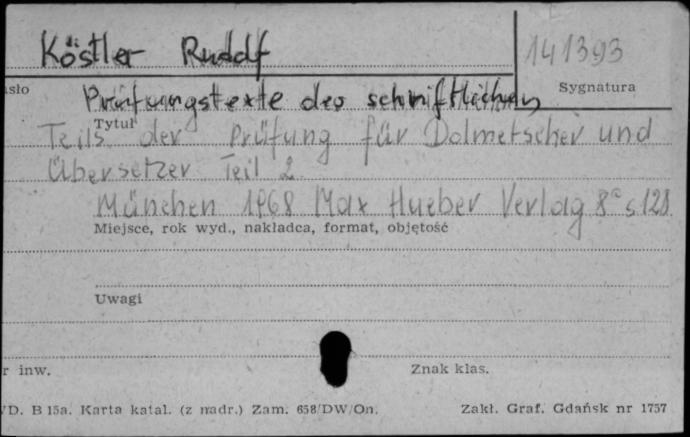 Köstler Rudolf 141393
Sygnatura
Prüfungstexte des schriftlichen
Tytuł
Teils der Prüfung für Dolmetscher und
Übersetzer Teil 2
München 1968 Max Hueber Verlag 8° s. 128
Miejsce, rok wyd., nakładca, format, objętość
Uwagi
r inw. Znak klas.
D. B 15a. Karta katal. (z nadr.) Zam. 658/DW/On. Zakł. Graf. Gdańsk nr 1757